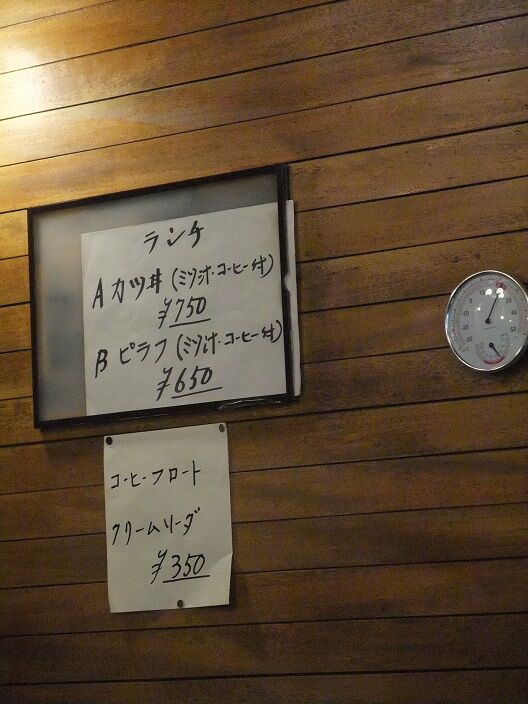 ランチ
Aカツ丼(ミソ汁・コーヒー付)
¥750
Bピラフ(ミソ汁・コーヒー付)
¥650
コーヒーフロート
クリームソーダ
¥350